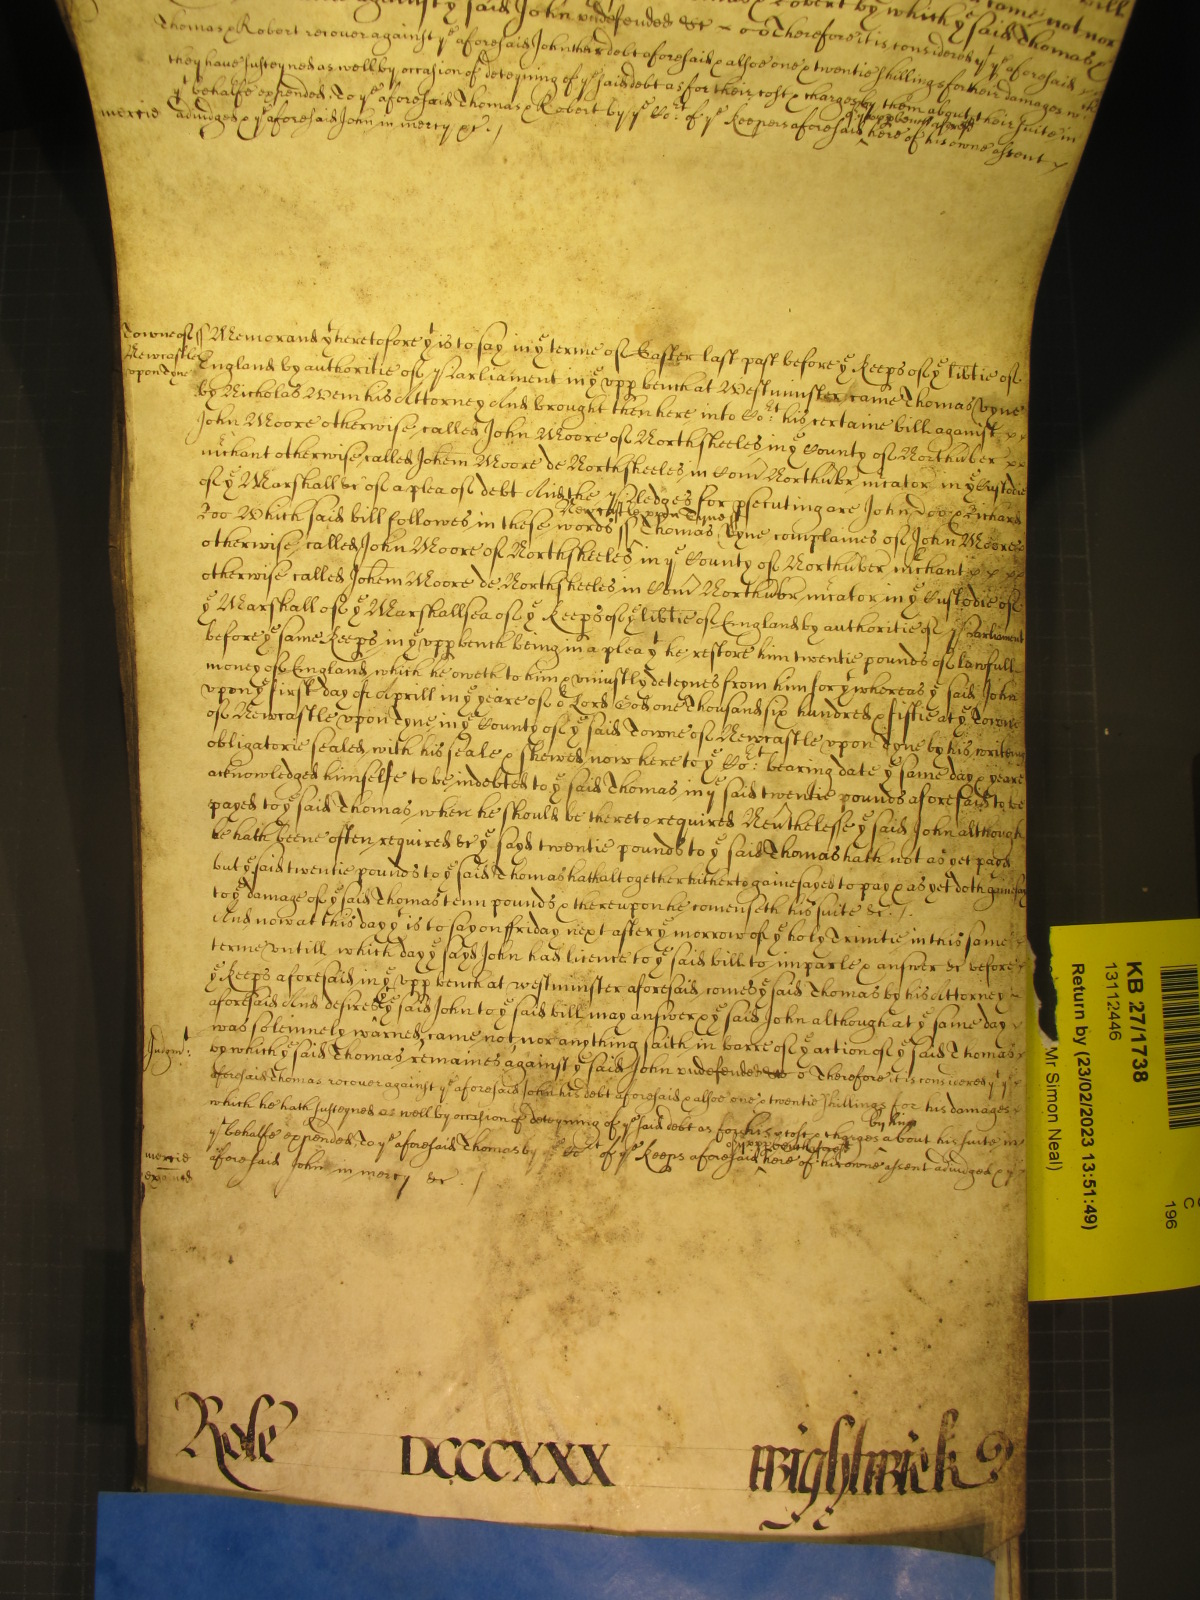 against y said John vndefended &c Therefore it is considered yt ye aforesaid
Thomas & Robert recover against ye aforesaid John their debt aforesaid & alsoe one & twentie shillings for their damages
they have susteyned as well by occasion of deteyning of ye said debt as for their cost & charges by them about their suite in
yt behalfe expended To ye aforesaid Thomas & Robert by ye Cort of ye Keepers aforesaid here of his owne assent
mercie adiudged & ye aforesaid John in mercy &c. /
Towne of Newcastle vpon Tyne ss Memorand yt heretofore yt is to say in ye terme of Easter last past before ye Keeps of ye libtie of
England by authoritie of Parliament in ye vpp bench at Westminster came Thomas Tyne
by Nicholas Wem his Attorney And brought then here into Cort his certaine bill against
John Moore otherwise called John Moore of Northsheeles in ye County of Northuber
mchant otherwise called Johem Moore de Northsheeles in Com Northubr mcator in ye Custodie
of ye Marshall &c of a plea of debt And the Pledges for psecuting are John Doo & Richard
Roo Which said bill followes in these words ss Newcastle vpon Tyne Thomas Tyne complaines of John Moore
otherwise called John Moore of Northsheeles in ye County of Northuber mchant
otherwise called Johem Moore de Northsheeles in Com Northubr mcator in ye Custodie of
ye Marshall of ye Marshallsea of ye Keeps of ye libtie of England by authoritie of Parliament
before ye same Keeps in ye vpp bench being in a plea yt he restore him twentie pounds of lawfull
money of England which he oweth to him & vniustly deteynes from him for yt whereas ye said John
vpon ye first day of Aprill in ye yeare of or Lord God one Thousand six hundred & fiftie at ye Towne
of Newcastle vpon Tyne in ye County of ye said Towne of Newcastle vpon Tyne by his writing
obligatorie sealed with his seale & shewed now here to ye Cort bearing date ye same day & yeare
acknowledged himselfe to be indebted to ye said Thomas in ye said twentie pounds aforesaid to be
payed to ye said Thomas when he should be thereto required Nevthelesse ye said John although
he hath beene often required &c ye sayd twentie pounds to ye said Thomas hath not as yet payd
but ye said twentie pounds to ye said Thomas hath altogether hitherto gainesayed to pay & as yet doth gainsay
to ye damage of ye said Thomas tenn pounds & thereupon he comenseth his suite &c. /.
And now at this day yt is to say on ffriday next after ye morrow of ye holy Trinitie in this same
terme vntill which day ye sayd John had licence to ye said bill to imparle & answer &c before
ye Keeps aforesaid in ye vpp bench at westminster aforesaid comes ye said Thomas by his Attorney
aforesaid And desires yt ye said John to ye said bill may answer & ye said John although at ye same day
was solemnely warned came not nor anything saith in barre of ye action of ye said Thomas
Iudgmt: by which ye said Thomas remaines against ye said John vndefended &c Therefore it is considered yt ye
aforesaid Thomas recover against ye aforesaid John his debt aforesaid & alsoe one & twentie shillings for his damages
which he hath susteyned as well by occasion of deteyning of ye said debt as for his cost & charges by him about his suite in
yt behalfe expended To ye aforesaid Thomas by ye Cort of ye Keeps aforesaid here of his owne assent adiudged & ye
mercie aforesaid John in mercy &c. /
Role DCCCXXX Wightwick
KB 27/1738
13112446
Return by (23/02/2023 13:51:49)
Mr Simon Neal)
C
196